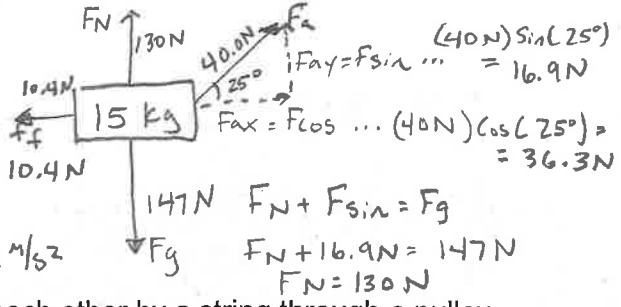 FN
130N
40.0N
Fa
25°
Fay = Fsin ... (40N) Sin(25°)
= 16.9N
10.4N
Ff
15 kg
Fax = Fcos ... (40N) Cos(25°) =
= 36.3N
10.4N
147N
FN + Fsin = Fg
m/s2
Fg
FN + 16.9N = 147N
FN = 130N
each other by a string through a pulley